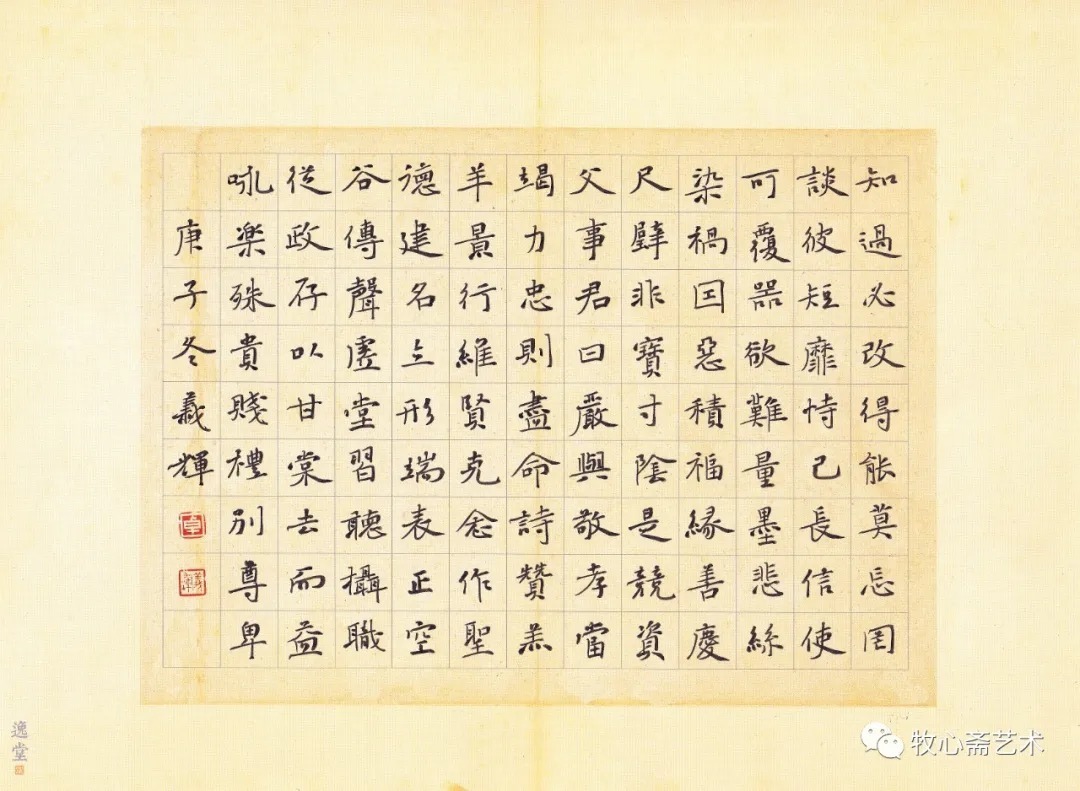 知過必改得能莫忘罔
談彼短靡恃己長信使
可覆器欲難量墨悲絲
染禍囙惡積福緣善慶
尺璧非寶寸陰是競資
父事君曰嚴與敬孝當
竭力忠則盡命詩贊羔
羊景行維賢克念作聖
德建名立形端表正空
谷傳聲虛堂習聽攝職
從政存以甘棠去而益
咏楽殊貴賤禮別尊卑
庚子冬義輝
逸堂
牧心斋艺术